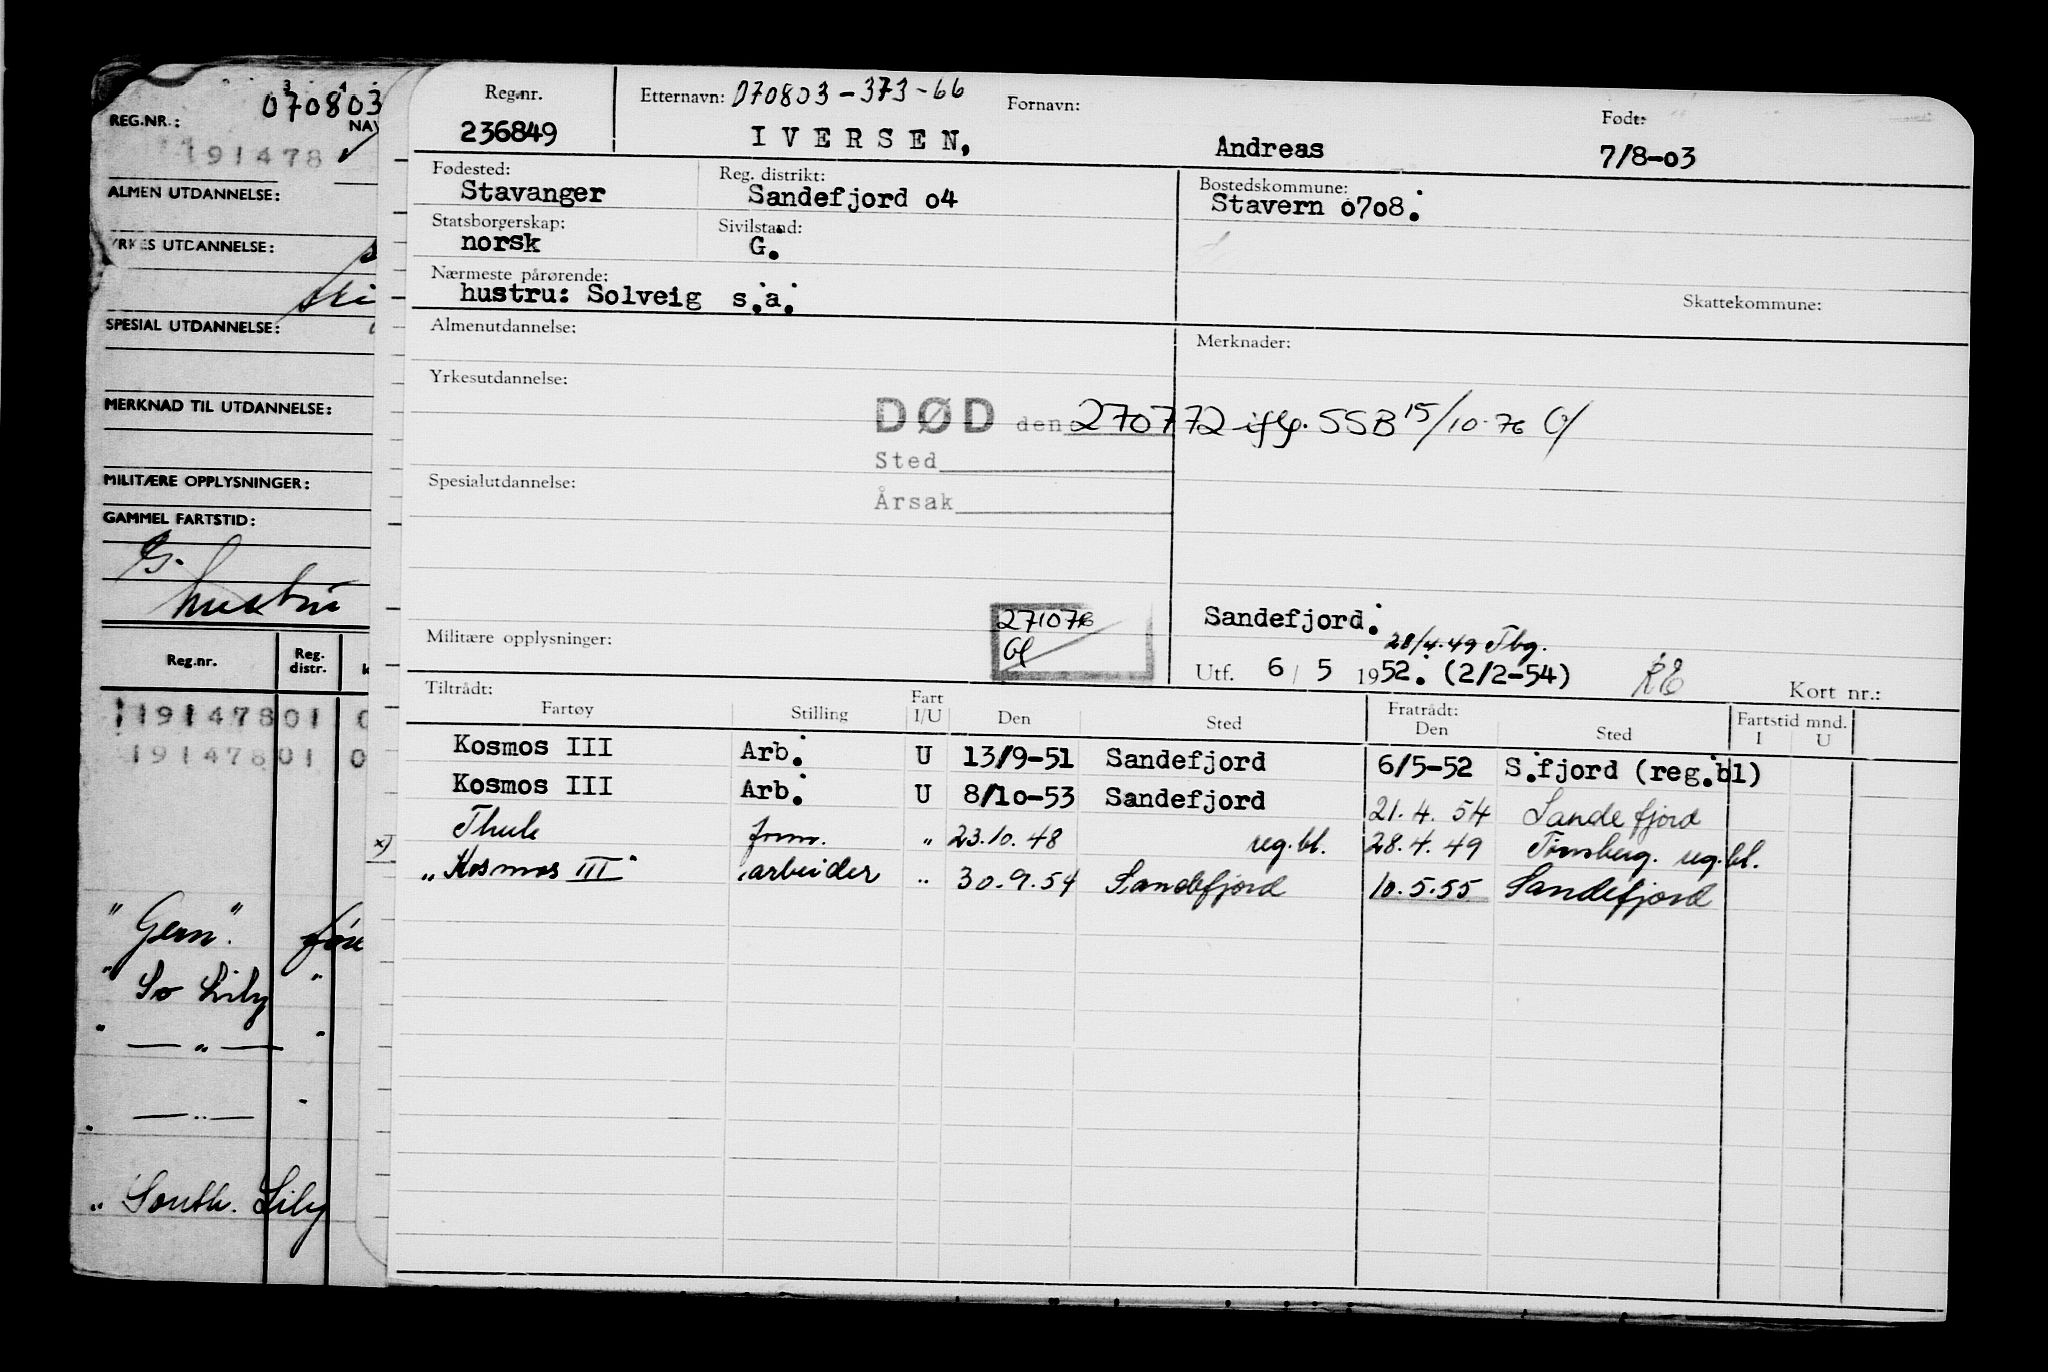 070803
REG.NR.:
NAV
191478
ALMEN UTDANNELSE:
YRKES UTDANNELSE:
SPESIAL UTDANNELSE:
MERKNAD TIL UTDANNELSE:
MILITÆRE OPPLYSNINGER:
GAMMEL FARTSTID:
G.
hustru
Reg.nr. Reg. distr.
191478 01 0
191478 01 0
"Gern".
" So Lily "
" — " — "
" — " — "
" South. Lily
Reg.nr. Etternavn: 070803-373-66 Fornavn: Født:
236849 IVERSEN, Andreas 7/8-03
Fødested: Reg. distrikt: Bostedskommune:
Stavanger Sandefjord o4 Stavern o7o8.
Statsborgerskap: Sivilstand:
norsk G.
Nærmeste pårørende:
hustru: Solveig s.a. Skattekommune:
Almenutdannelse: Merknader:
Yrkesutdannelse:
DØD den 270772 iflg. SSB 15/10-76
Sted
Spesialutdannelse:
Årsak
271076 Sandefjord.
Militære opplysninger: 28/4.49 Tbg.
Utf. 6/5 1952. (2/2-54) Kort nr.:
Tiltrådt: Fratrådt:
Fartøy Stilling Fart I/U Den Sted Den Sted Fartstid mnd. I U
Kosmos III Arb. U 13/9-51 Sandefjord 6/5-52 S.fjord (reg.bl)
Kosmos III Arb. U 8/1o-53 Sandefjord 21.4.54 Sandefjord
x) Thule " 23.10.48 reg.bl. 28.4.49 Tønsberg. reg.bl.
"Kosmos III" arbeider " 30.9.54 Sandefjord 10.5.55 Sandefjord